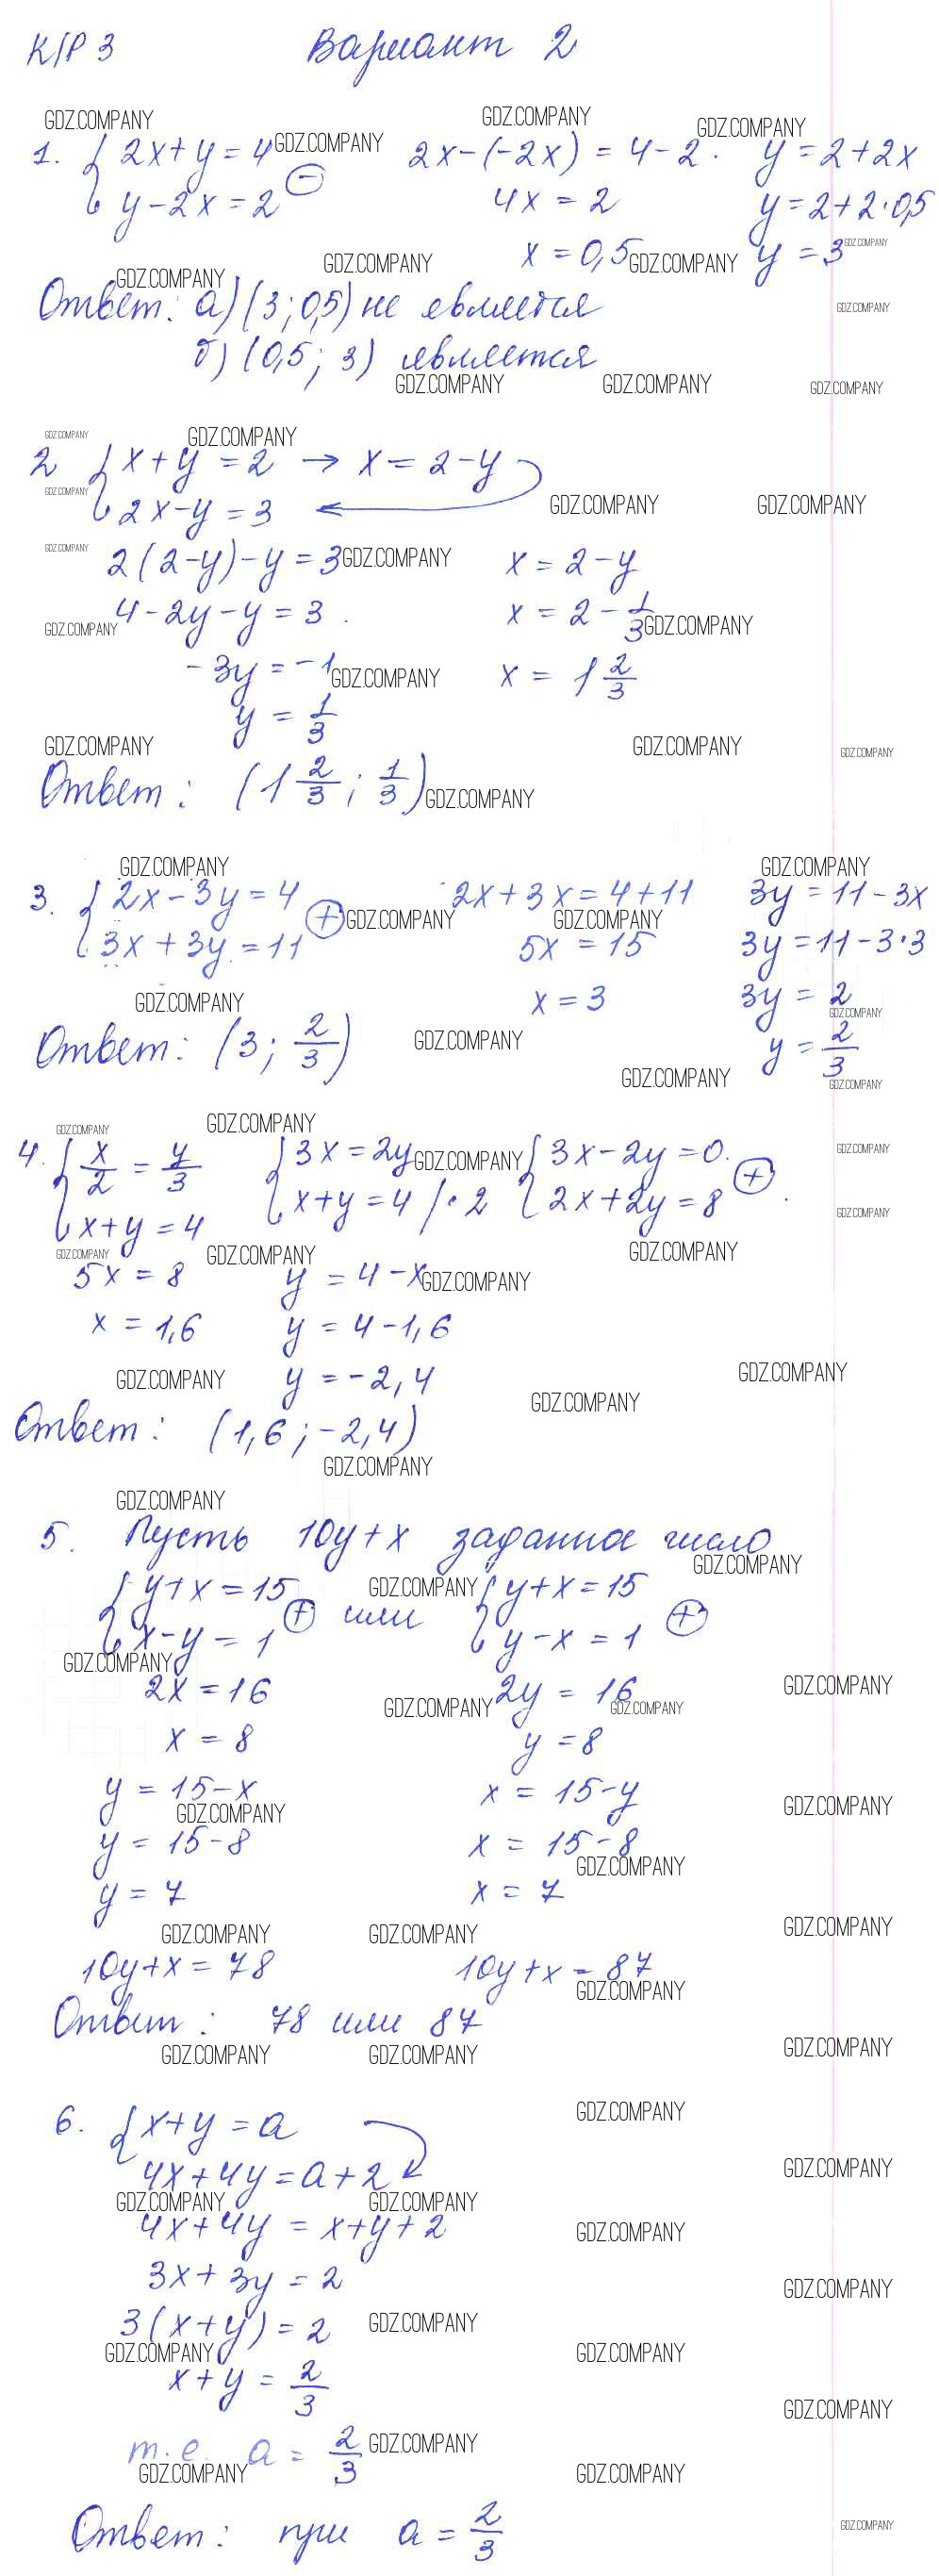 К/Р 3 Вариант 2
GDZ.COMPANY GDZ.COMPANY GDZ.COMPANY
1. { 2x + y = 4 GDZ.COMPANY 2x - (-2x) = 4 - 2. y = 2 + 2x
y - 2x = 2 ⊖ 4x = 2 y = 2 + 2·0,5
GDZ.COMPANY GDZ.COMPANY x = 0,5 GDZ.COMPANY y = 3 GDZ.COMPANY
Ответ: а) (3; 0,5) не является GDZ.COMPANY
б) (0,5; 3) является
GDZ.COMPANY GDZ.COMPANY GDZ.COMPANY
GDZ.COMPANY GDZ.COMPANY
2 { x + y = 2 → x = 2 - y
GDZ.COMPANY 2x - y = 3 ← GDZ.COMPANY GDZ.COMPANY
GDZ.COMPANY 2(2 - y) - y = 3 GDZ.COMPANY x = 2 - y
GDZ.COMPANY 4 - 2y - y = 3 x = 2 - 1/3 GDZ.COMPANY
-3y = -1 GDZ.COMPANY x = 1 2/3
y = 1/3
GDZ.COMPANY GDZ.COMPANY GDZ.COMPANY
Ответ: (1 2/3; 1/3) GDZ.COMPANY
GDZ.COMPANY GDZ.COMPANY
3. { 2x - 3y = 4 2x + 3x = 4 + 11 3y = 11 - 3x
⊕ GDZ.COMPANY GDZ.COMPANY
3x + 3y = 11 5x = 15 3y = 11 - 3·3
GDZ.COMPANY x = 3 3y = 2 GDZ.COMPANY
Ответ: (3; 2/3) GDZ.COMPANY y = 2/3
GDZ.COMPANY GDZ.COMPANY
GDZ.COMPANY GDZ.COMPANY
4. { x/2 = y/3 { 3x = 2y GDZ.COMPANY { 3x - 2y = 0. GDZ.COMPANY
x + y = 4 x + y = 4 /·2 2x + 2y = 8 ⊕ GDZ.COMPANY
GDZ.COMPANY GDZ.COMPANY GDZ.COMPANY
5x = 8 y = 4 - x GDZ.COMPANY
x = 1,6 y = 4 - 1,6
GDZ.COMPANY y = -2,4 GDZ.COMPANY GDZ.COMPANY
Ответ: (1,6; -2,4)
GDZ.COMPANY
GDZ.COMPANY
5. Пусть 10y + x заданное число
GDZ.COMPANY
{ y + x = 15 GDZ.COMPANY { y + x = 15
x - y = 1 ⊕ или y - x = 1 ⊕
GDZ.COMPANY
2x = 16 GDZ.COMPANY 2y = 16 GDZ.COMPANY GDZ.COMPANY
x = 8 y = 8
y = 15 - x x = 15 - y
GDZ.COMPANY GDZ.COMPANY
y = 15 - 8 x = 15 - 8
GDZ.COMPANY
y = 7 x = 7
GDZ.COMPANY GDZ.COMPANY GDZ.COMPANY
10y + x = 78 10y + x = 87
GDZ.COMPANY
Ответ: 78 или 87
GDZ.COMPANY GDZ.COMPANY GDZ.COMPANY
6. { x + y = a GDZ.COMPANY
4x + 4y = a + 2 GDZ.COMPANY
GDZ.COMPANY GDZ.COMPANY
4x + 4y = x + y + 2 GDZ.COMPANY
3x + 3y = 2 GDZ.COMPANY
3(x + y) = 2 GDZ.COMPANY
GDZ.COMPANY GDZ.COMPANY
x + y = 2/3 GDZ.COMPANY
т.е. a = 2/3 GDZ.COMPANY
GDZ.COMPANY GDZ.COMPANY
Ответ: при a = 2/3 GDZ.COMPANY